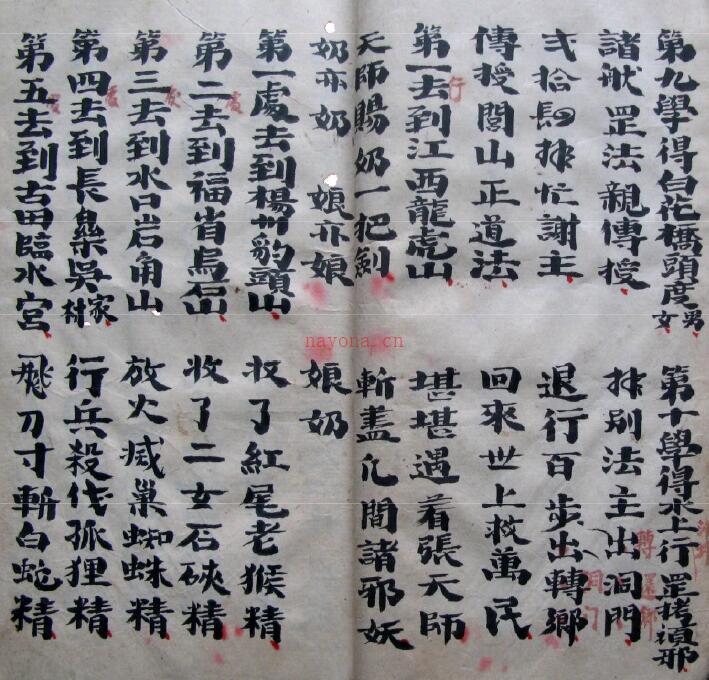 第九學得白花橋頭度男女 第十學得水上行罡捞順邪
諸般罡法親傳授 拜別法主出洞門
弍拾四拜忙謝主 退行百步出轉鄉
傳授閭山正道法 回來世上救萬民
第一去到江西龍虎山 堪堪遇着張天師
天師賜奶一把劍 斬盡凢間諸邪妖
奶亦奶 娘亦娘 娘奶
第一處去到楊州豹頭山 收了紅尾老猴精
第二去到福省烏石山 收了二女石硤精
第三去到水口岩角山 放火滅巢蜘蛛精
第四去到長㮾吳家村 行兵殺伐狐狸精
第五去到古田臨水宮 飛刀寸斬白蛇精
行
處
轉還鄉
洞门
nayona.cn